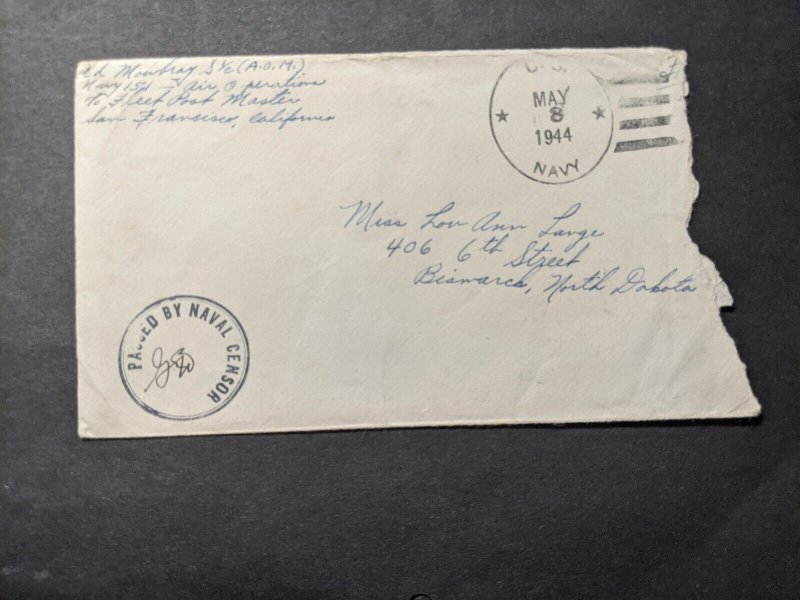 Ed Mowbray S 1/c (A.O.M.)
Navy 151 Air Operations
To Fleet Post Master
San Francisco, California
U.S.
MAY
8
1944
NAVY
Miss Lou Ann Lange
406 6th Street
Bismarck, North Dakota
PASSED BY NAVAL CENSOR